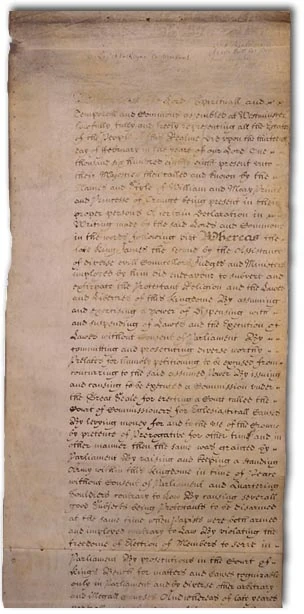 Lords Spirituall and
Temporall and Commons assembled at Westminster
Lawfully fully and freely representing all the Estates
of the People of this Realme did upon the thirteenth
day of February in the yeare of our Lord One
thousand six hundred eighty eight present unto
their Majesties then called and known by the
Names and Stile of William and Mary Prince
and Princesse of Orange being present in their
proper persons A certain Declaration in
Writing made by the said Lords and Commons
in the words following viz Whereas the
late King James the second by the Assistance
of diverse evill Councellors Judges and Ministers
imployed by him did endeavour to subvert and
extirpate the Protestant Religion and the Lawes
and Liberties of this Kingdome By assuming
and exercising a power of Dispensing with
and suspending of Lawes and the Execution of
Lawes without Consent of Parliament By
committing and prosecuting diverse worthy
Prelates for humbly petitioning to be excused from
concurring to the said assumed power By issuing
and causing to be executed a Commission under
the Great Seale for erecting a Court called the
Court of Commissioners for Ecclesiasticall Causes
By levying money for and to the use of the Crowne
by pretence of Prerogative for other time and in
other manner then the same was granted by
Parliament By raising and keeping a standing
Army within this Kingdome in time of Peace
without Consent of Parliament and Quartering
Souldiers contrary to Law By causing severall
good Subjects being Protestants to be disarmed
at the same time when Papists were both armed
and imployed contrary to Law By violating the
freedome of Election of Members to serve in
Parliament By prosecutions in the Court of
Kings Bench for matters and causes cognizable
only in Parliament and by diverse other arbitrary
and illegall Courses And whereas of late yeares